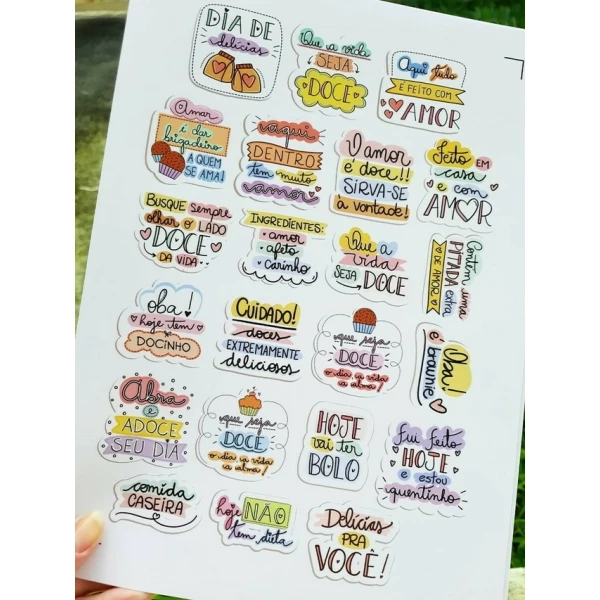 DIA DE
delícias
Que a vida
SEJA
DOCE
Aqui tudo
É FEITO COM
AMOR
Amar
é dar
brigadeiro
A QUEM
SE AMA!
aqui
DENTRO
tem muito
amor
O amor
é doce!!
SIRVA-SE
à vontade!
Feito EM
casa
e com
AMOR
BUSQUE sempre
olhar O LADO
DOCE
DA VIDA
INGREDIENTES:
• amor
• afeto
• Carinho
Que a
vida
SEJA DOCE
Contém uma
PITADA extra
DE AMOR
oba!
hoje tem
DOCINHO
CUIDADO!
doces
EXTREMAMENTE
deliciosos
que seja
DOCE
o dia, a vida
a alma!
Oba!
é brownie
Abra
e
ADOCE
SEU DIA
que seja
DOCE
o dia, a vida
a alma!
HOJE
vai ter
BOLO
Fui feito
HOJE
e estou
quentinho
comida
CASEIRA
hoje NÃO
tem dieta
Delícias
PRA
VOCÊ!